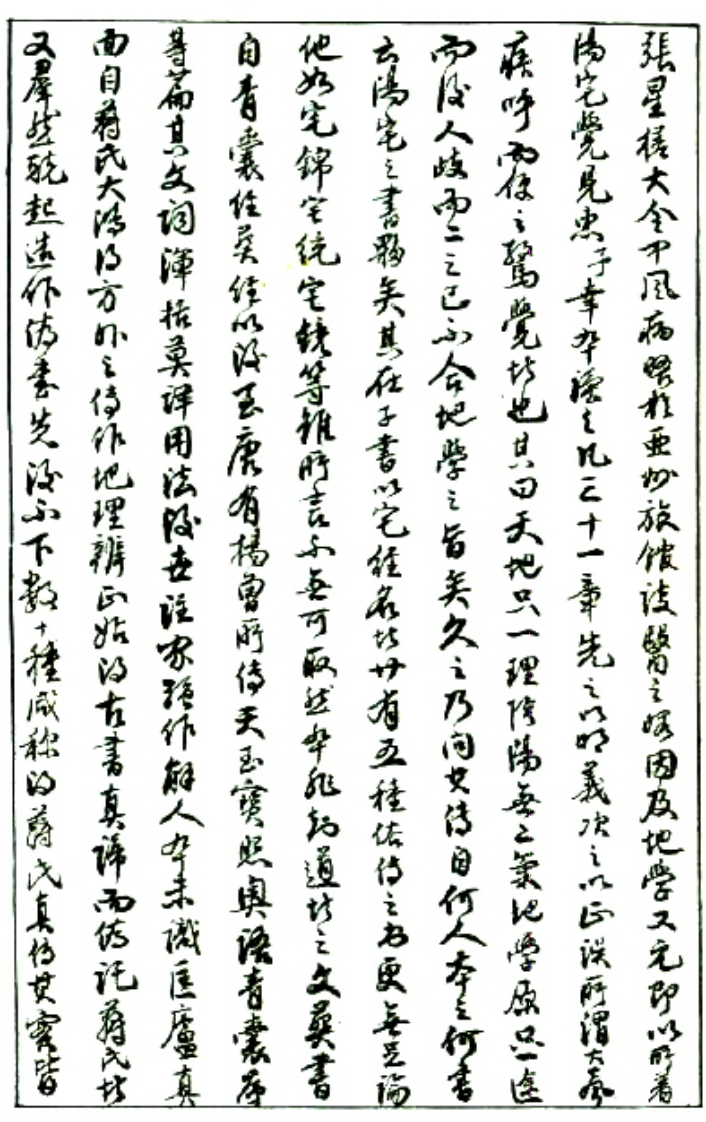 張星楂大令中風病踣於亞洲旅館談醫之餘因及地學又完即以所著
陽宅覺見惠予幸卒讀之凡三十一章先之以明義次之以正誤所謂大聲
疾呼而使之驚覺者也其曰天地只一理陰陽無二氣地學原只一途
而後人歧而二之已不合地學之旨矣久之乃問其傳自何人本之何書
云陽宅之書夥矣其在子書以宅經名者廿有五種佑傳之書更無足論
他如宅錦宅統宅鏡等雖所言不無可取然卒非知道者之文葬書
自青囊經葬經以後至唐有楊曾所傳天玉寶照奧語青囊序
等篇其文詞渾括莫詳用法後世註家強作解人卒未識匡廬真
面自蔣氏大鴻得方外之傳作地理辨正始得古書真諦而偽託蔣氏者
又羣然競起造作偽書先後不下數十種咸称得蔣氏真傳其實皆